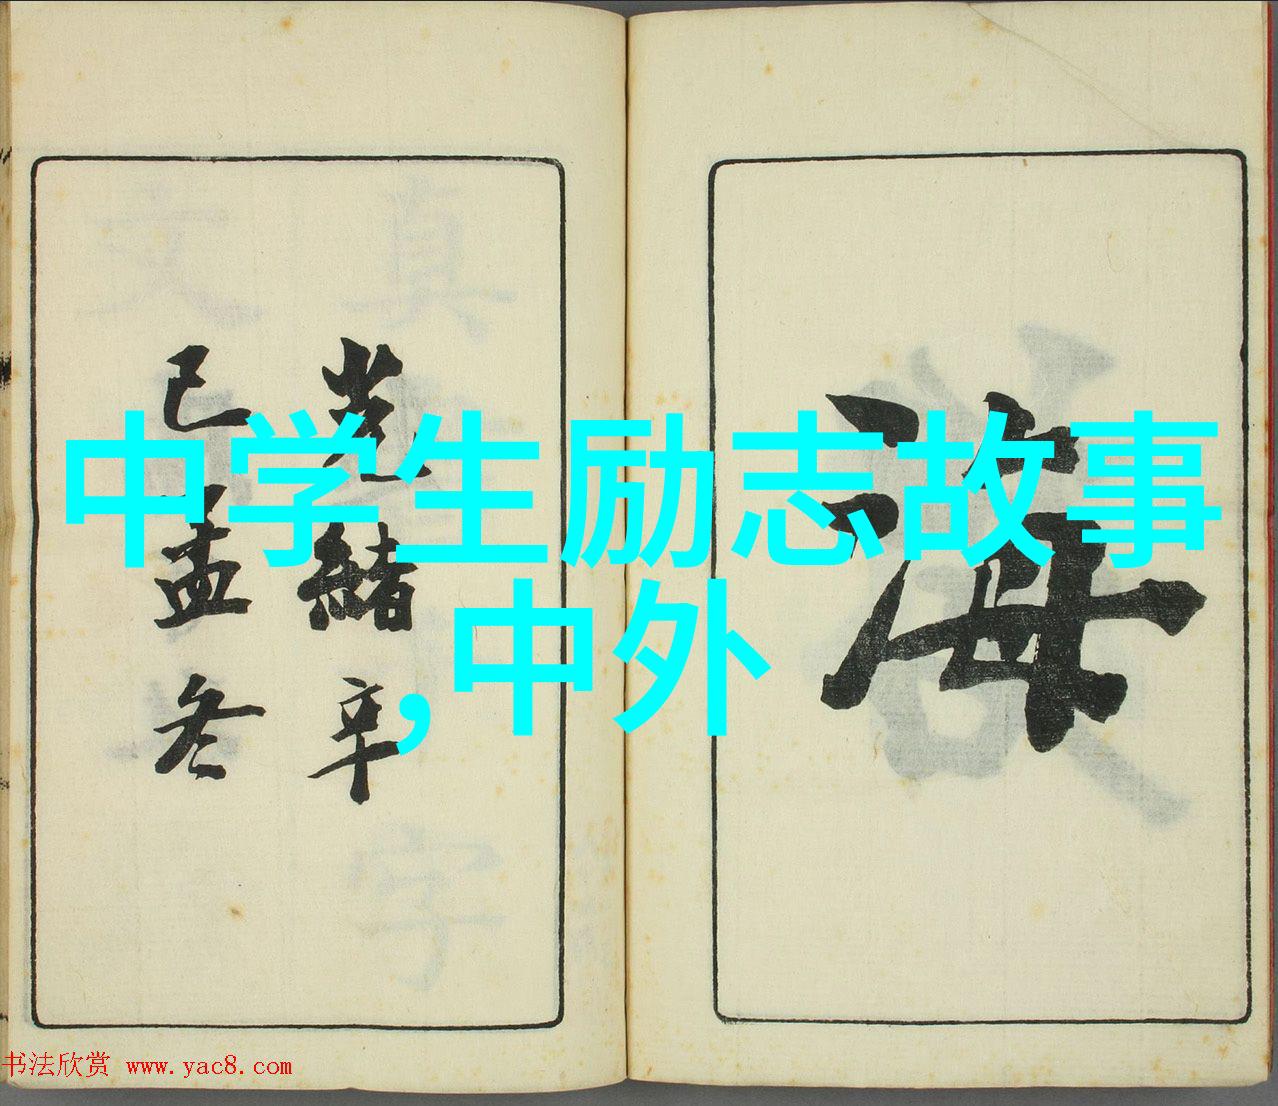 中学生励志故事
,中外
海
光緒辛
巳孟冬
书法欣赏 www.yac8.com